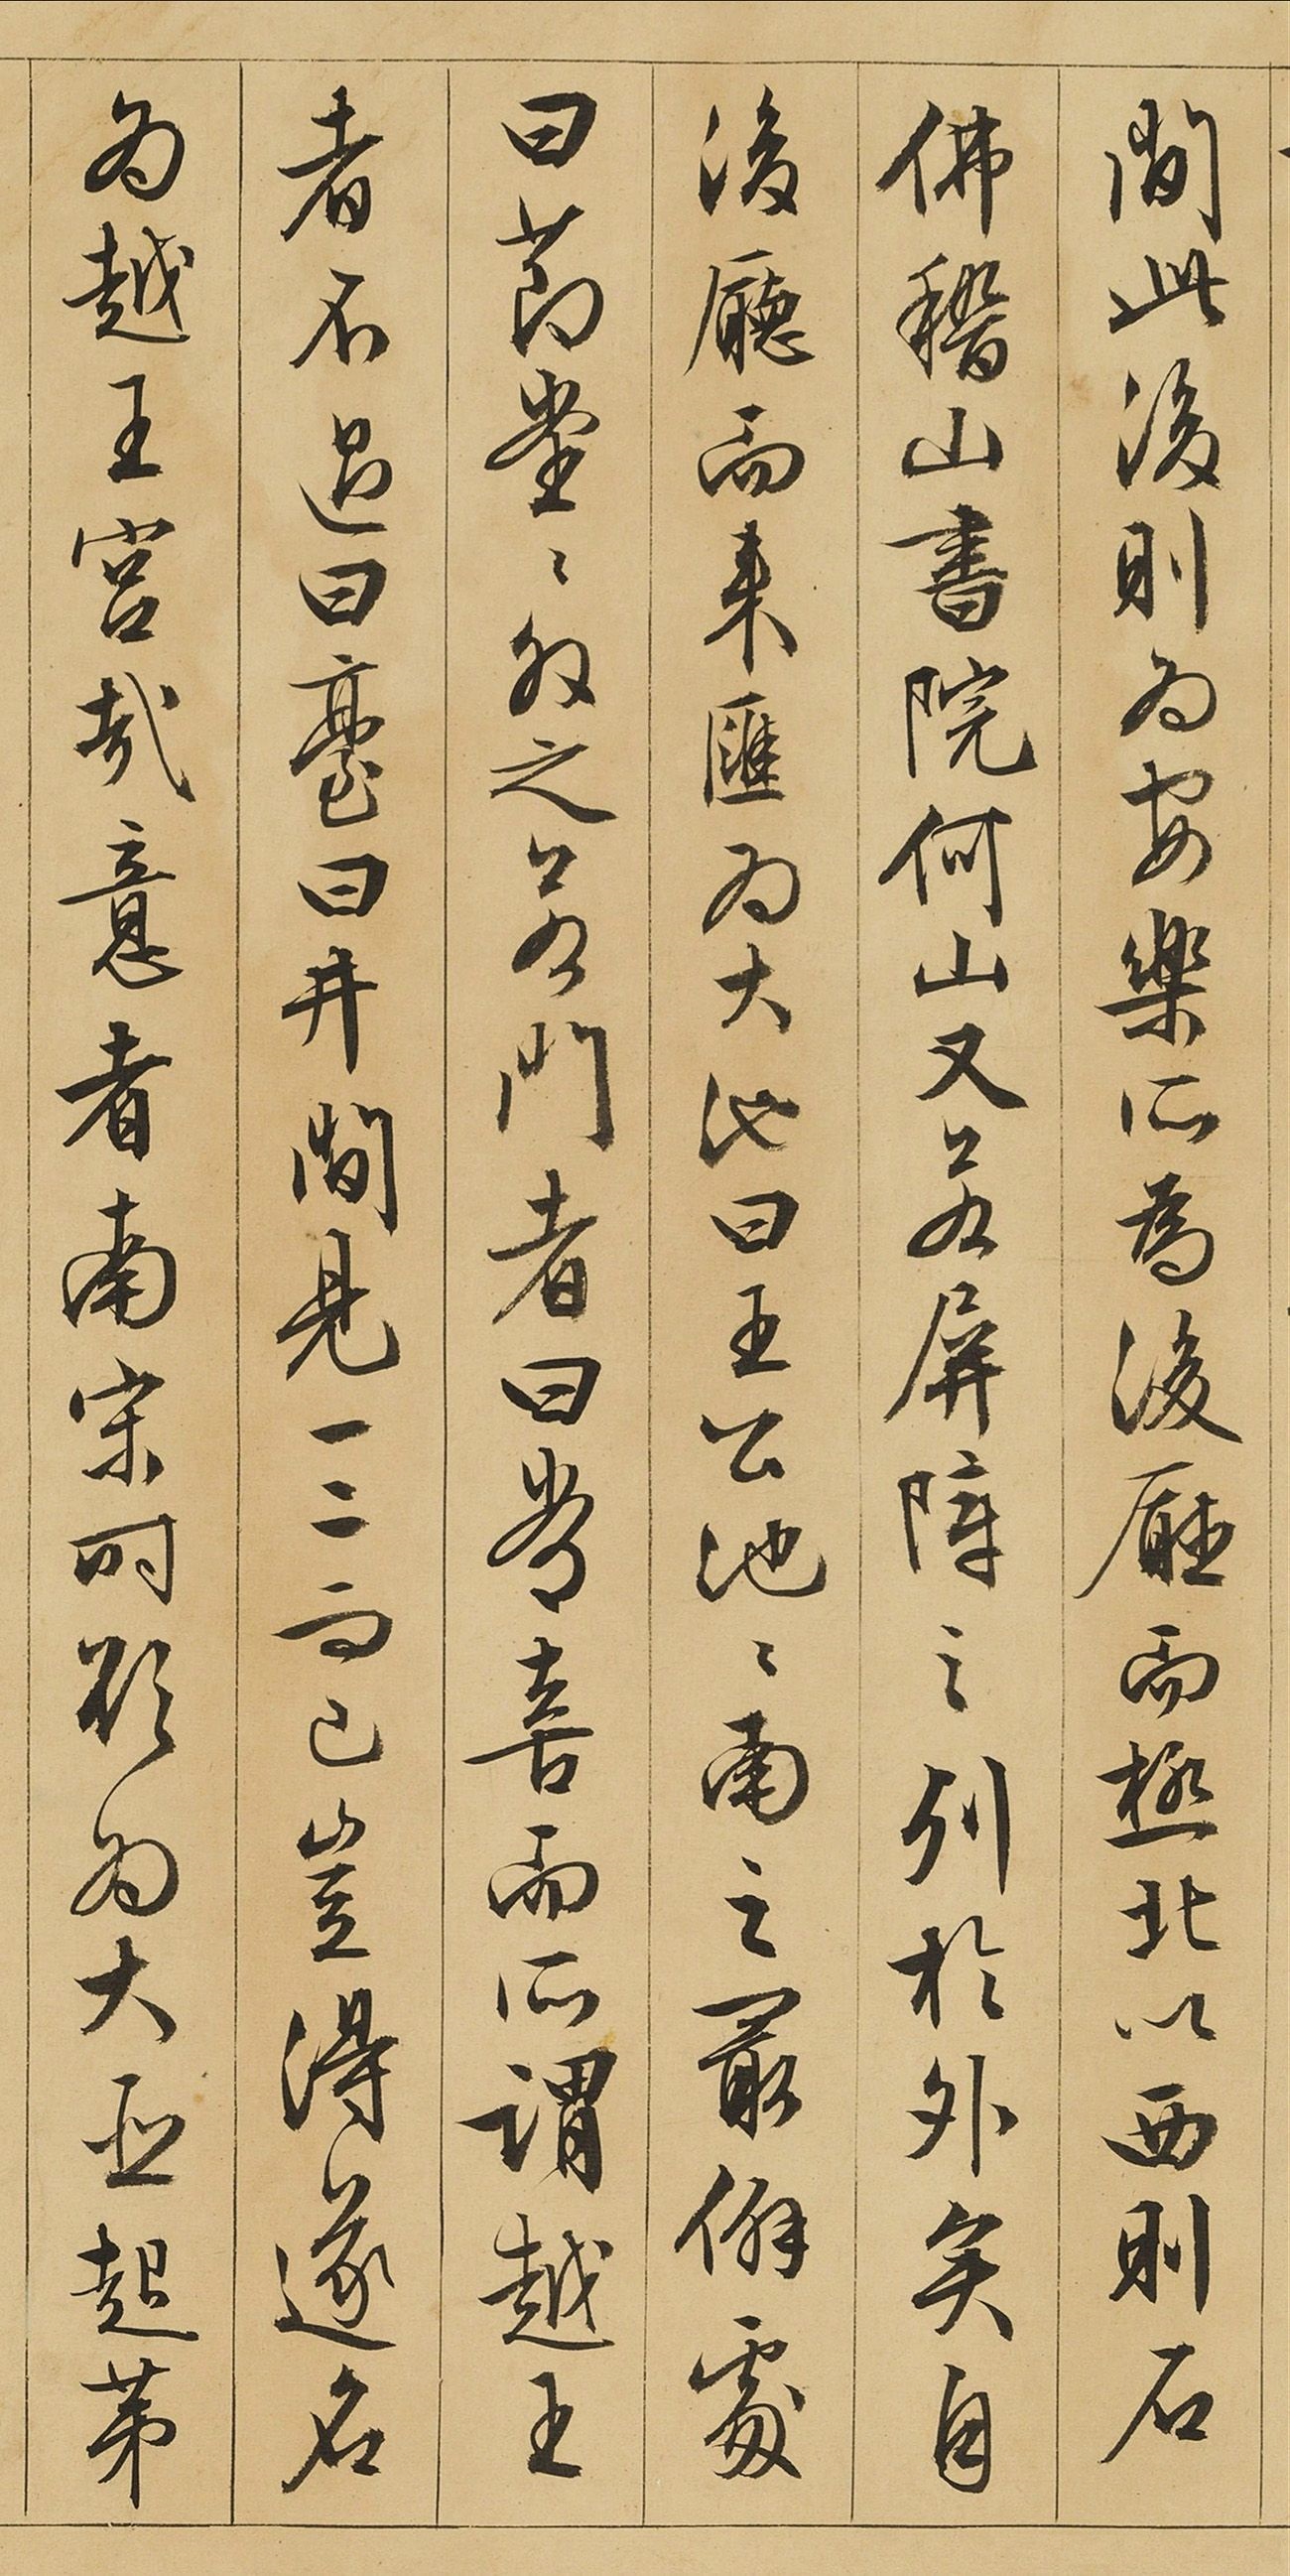 間此後則為安樂所為後廳而極北以西則石
佛稽山書院何山又若屏障之列於外矣自
後廳而來匯為大池曰王公池〻南之最僻處
曰節堂〻敘之又若門者曰耆喜而所謂越王
者不過曰臺曰井間見一二而已豈得遂名
為越王宮哉意者南宋時欲為大亞起第